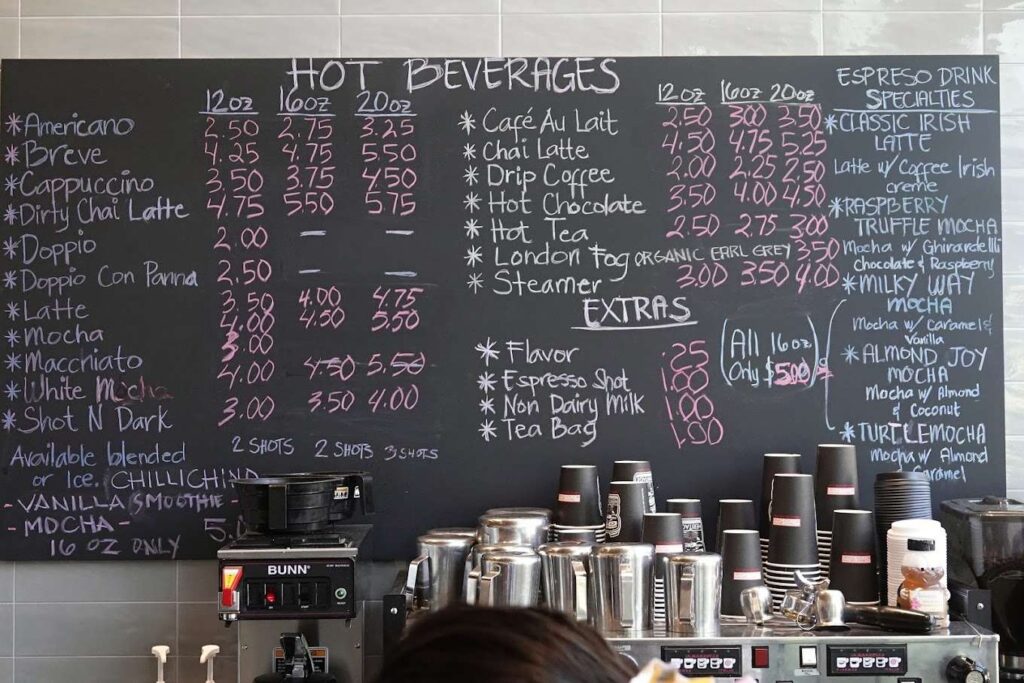 HOT BEVERAGES
12oz 16oz 20oz
* Americano 2.50 2.75 3.25
* Breve 4.25 4.75 5.50
* Cappuccino 3.50 3.75 4.50
* Dirty Chai Latte 4.75 5.50 5.75
* Doppio 2.00 — —
* Doppio Con Panna 2.50 — —
* Latte 3.50 4.00 4.75
* Mocha 4.00 4.50 5.50
* Macchiato 3.00
* White Mocha 4.00 4.50 5.50
* Shot N Dark 3.00 3.50 4.00
2 SHOTS 2 SHOTS 3 SHOTS
Available blended
or Ice. CHILLICHINO
- VANILLA SMOOTHIE -
- MOCHA - 5.
16 OZ ONLY
12oz 16oz 20oz
* Café Au Lait 2.50 300 3.50
* Chai Latte 4.50 4.75 5.25
* Drip Coffee 2.00 2.25 2.50
* Hot Chocolate 3.50 4.00 4.50
* Hot Tea 2.50 2.75 300
* London Fog ORGANIC EARL GREY 3.50
* Steamer 3.00 3.50 4.00
EXTRAS
* Flavor .25
* Espresso Shot 1.00
* Non Dairy Milk 1.00
* Tea Bag 1.00
All 16oz
Only $5.00
ESPRESO DRINK
SPECIALTIES
* CLASSIC IRISH
LATTE
Latte w/ Coffee Irish
creme
* RASPBERRY
TRUFFLE MOCHA
Mocha w/ Ghirardelli
Chocolate & Raspberry
* MILKY WAY
MOCHA
Mocha w/ Caramel &
Vanilla
* ALMOND JOY
MOCHA
Mocha w/ Almond
& Coconut
* TURTLE MOCHA
Mocha w/ Almond
Caramel
BUNN